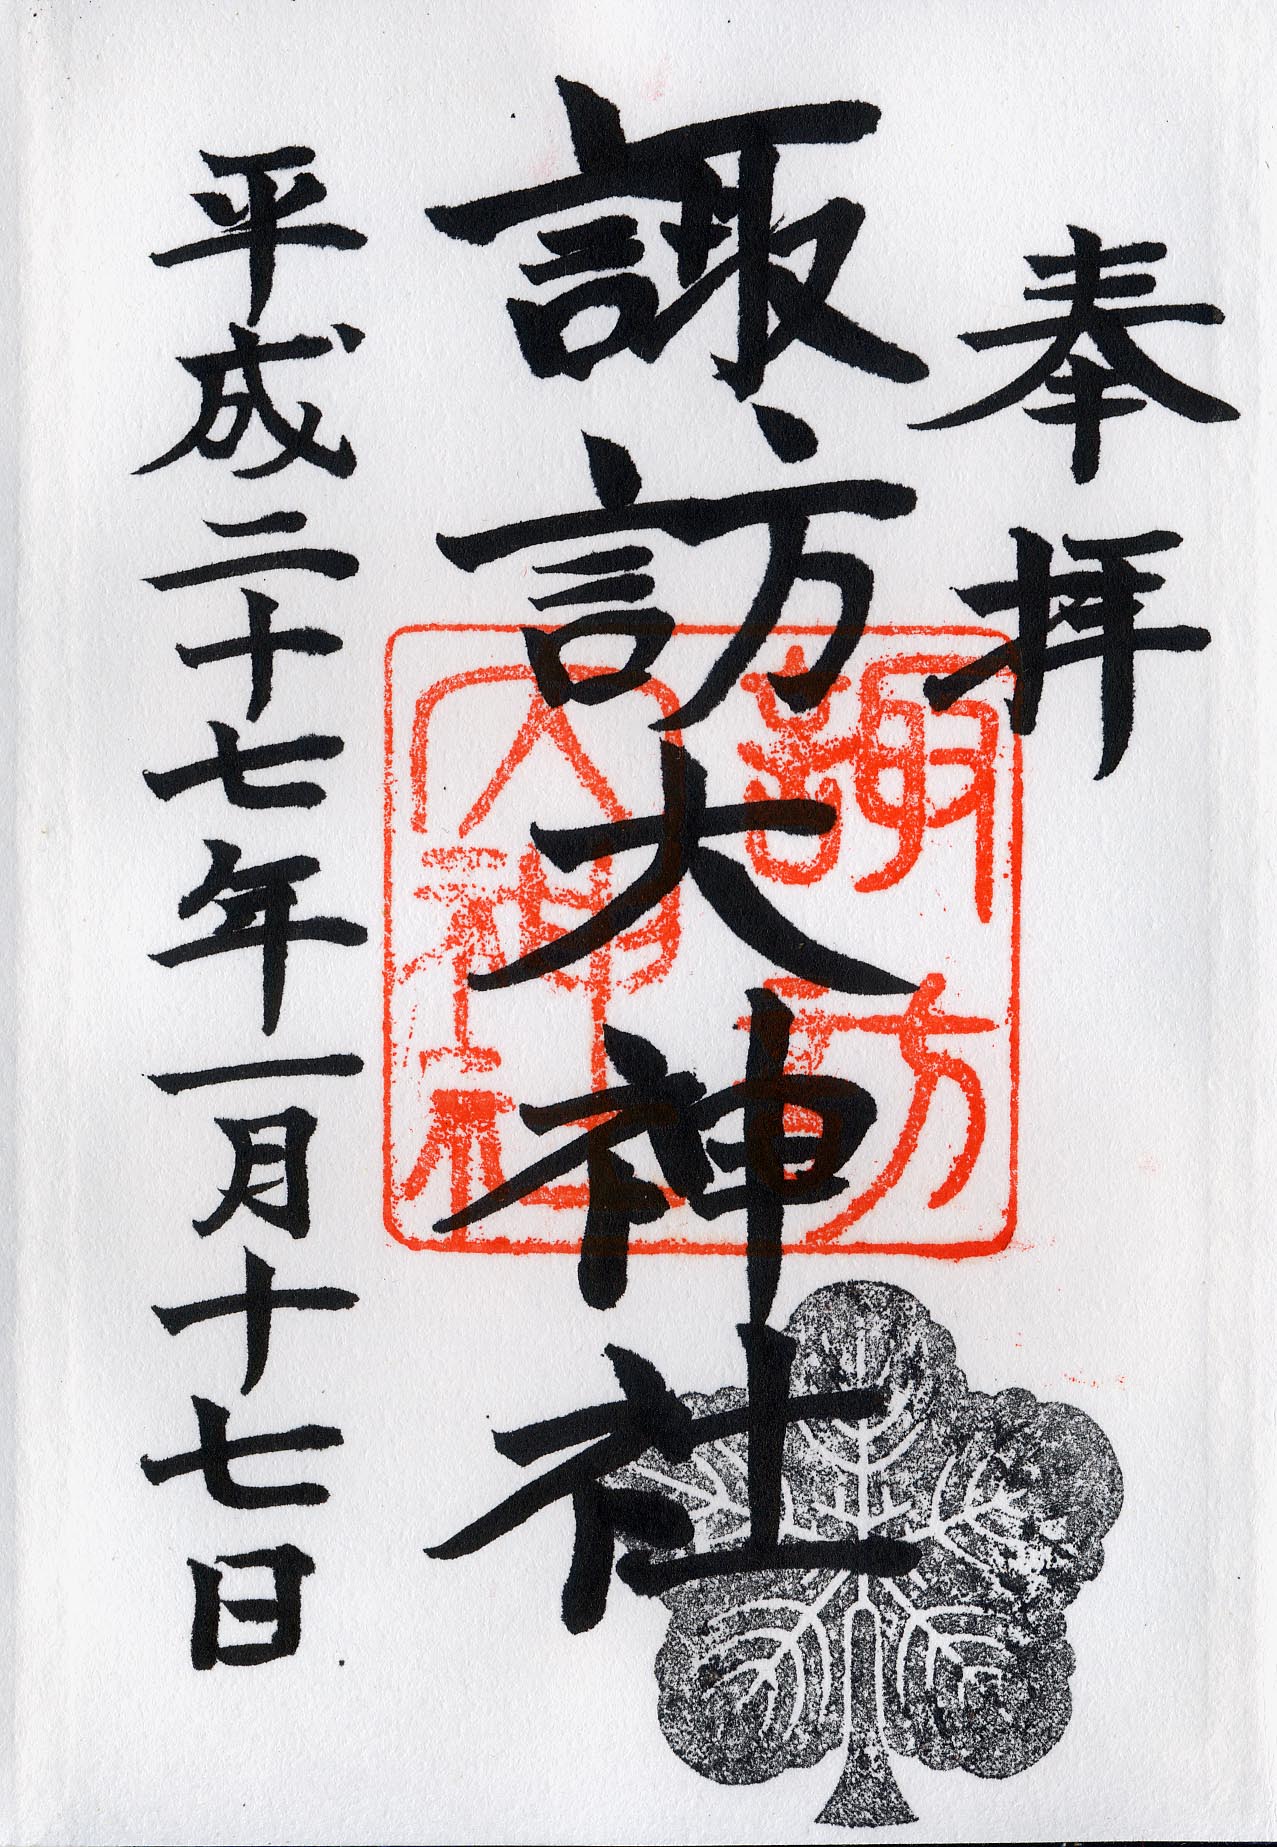 奉拝
諏訪大神社
平成二十七年一月十七日
諏訪
大神社